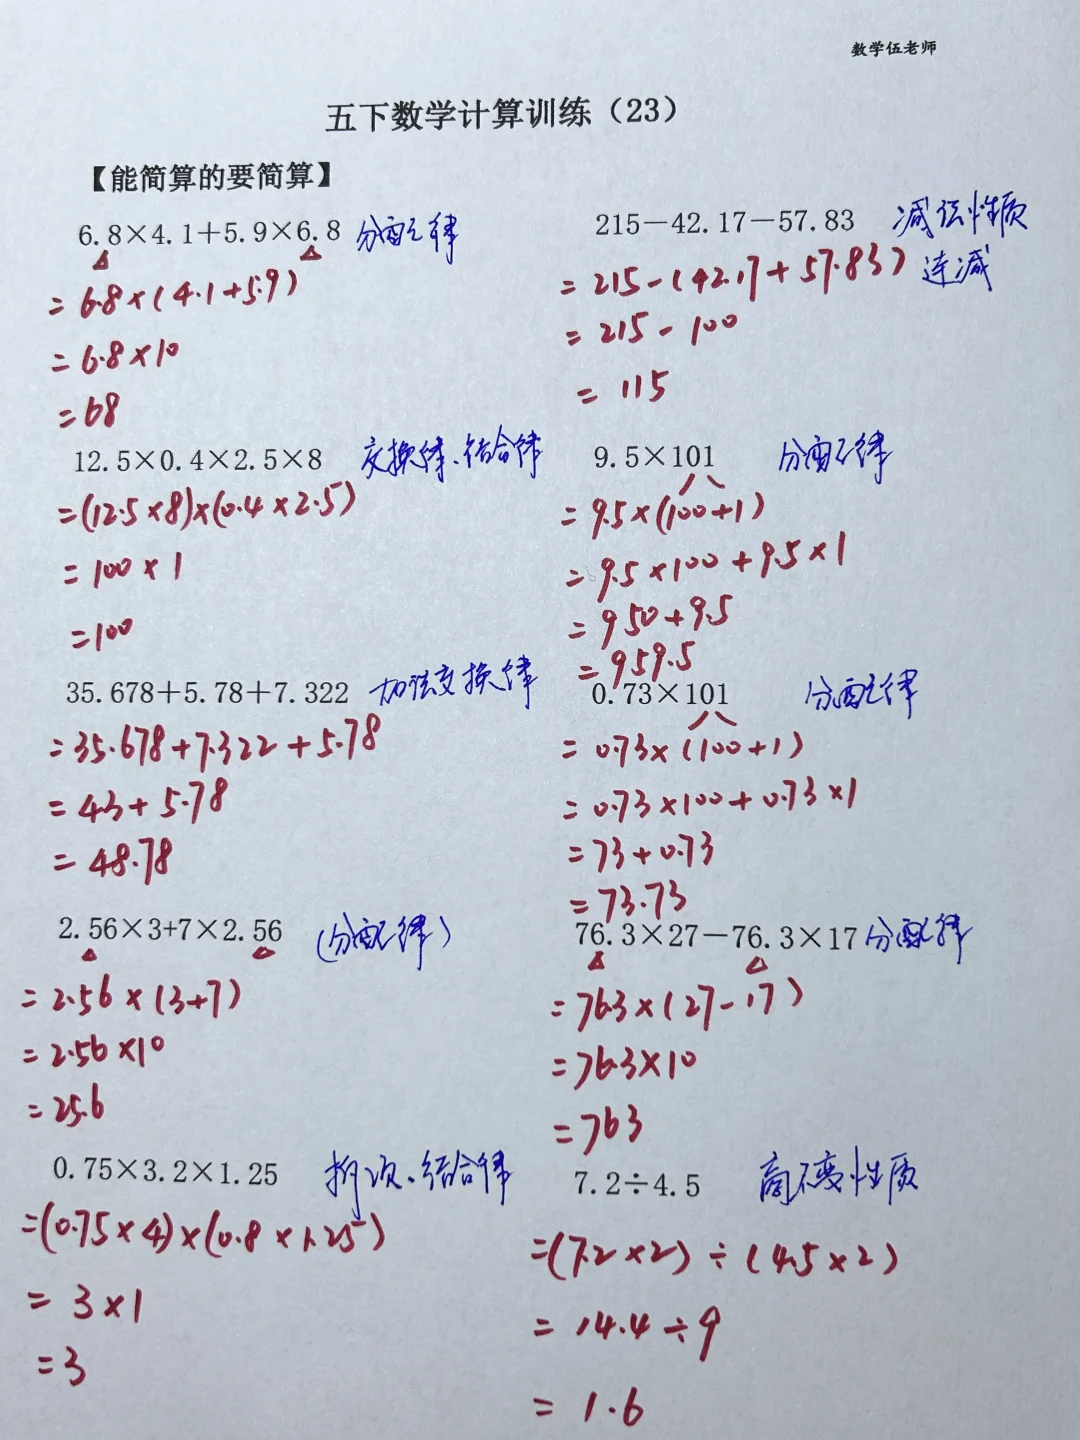 数学伍老师
五下数学计算训练（23）
【能简算的要简算】
6.8×4.1+5.9×6.8 分配律
=6.8×(4.1+5.9)
=6.8×10
=68
215-42.17-57.83 减法性质
=215-(42.17+57.83) 连减
=215-100
=115
12.5×0.4×2.5×8 交换律、结合律
=(12.5×8)×(0.4×2.5)
=100×1
=100
9.5×101 分配律
=9.5×(100+1)
=9.5×100+9.5×1
=950+9.5
=959.5
35.678+5.78+7.322 加法交换律
=35.678+7.322+5.78
=43+5.78
=48.78
0.73×101 分配律
=0.73×(100+1)
=0.73×100+0.73×1
=73+0.73
=73.73
2.56×3+7×2.56 (分配律)
=2.56×(3+7)
=2.56×10
=25.6
76.3×27-76.3×17 分配律
=76.3×(27-17)
=76.3×10
=763
0.75×3.2×1.25 拆项、结合律
=(0.75×4)×(0.8×1.25)
=3×1
=3
7.2÷4.5 商不变性质
=(7.2×2)÷(4.5×2)
=14.4÷9
=1.6